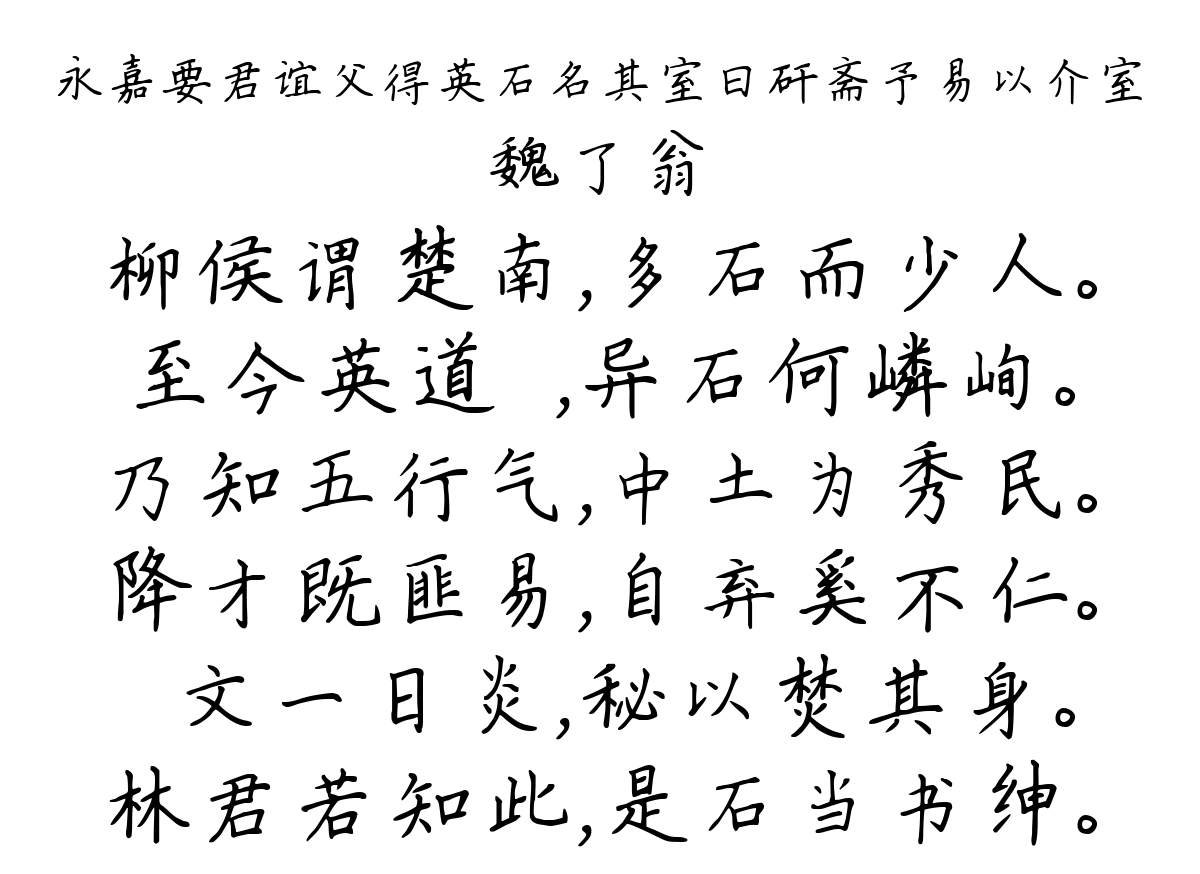 永嘉要君谊父得英石名其室曰矸斋予易以介室
魏了翁
柳侯谓楚南,多石而少人。
至今英道 ,异石何嶙峋。
乃知五行气,中土为秀民。
降才既匪易,自弃奚不仁。
文一日炎,秘以焚其身。
林君若知此,是石当书绅。